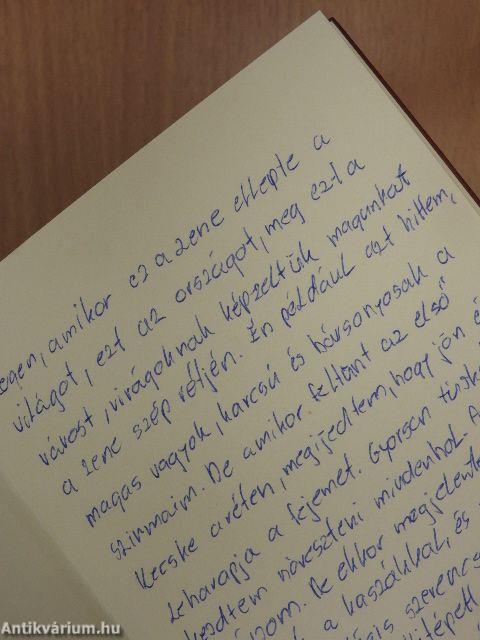 egen, amikor ez a zene ellepte a
világot, ezt az országot, meg ezt a
várost, virágoknak képzeltük magunkat
a zene szép rétjén. Én például azt hittem,
magas vagyok, karcsú és bársonyosak a
szirmaim. De amikor feltűnt az első
kecske a réten, megijedtem, hogy jön é
leharapja a fejemet. Gyorsan tüsk
kezdtem növeszteni mindenhol. A
De ekkor megjelente
a kaszákkal, és
is szerencs
kilépett
Antikvárium.hu